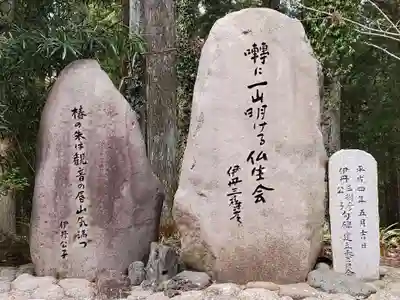 椿の朱は観音の山気満つ
伊丹公子
囀に一山明ける仏生会
伊丹三樹彦
平成四年五月吉日
伊丹三樹彦公子句碑建立委員会